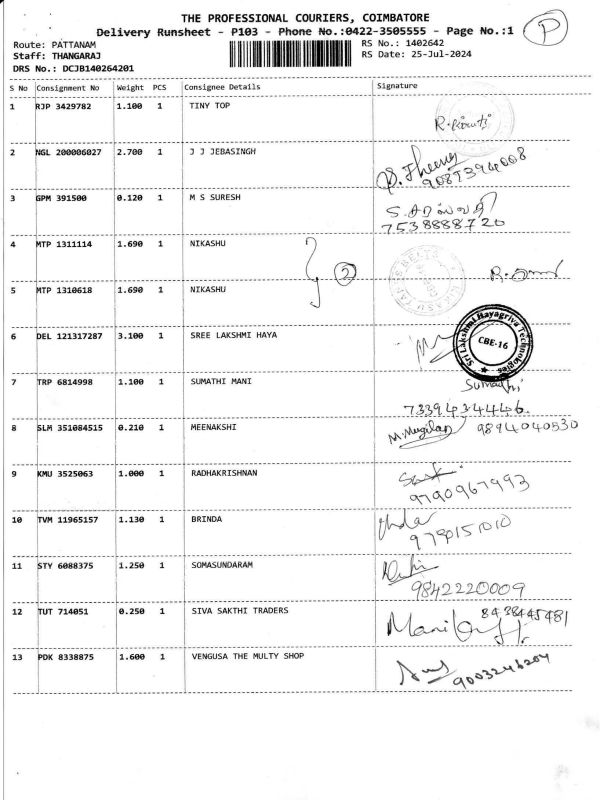 THE PROFESSIONAL COURIERS, COIMBATORE
Delivery Runsheet - P103 - Phone No.:0422-3505555 - Page No.:1
P
Route: PATTANAM
RS No.: 1402642
Staff: THANGARAJ
RS Date: 25-Jul-2024
DRS No.: DCJB140264201
S No Consignment No Weight PCS Consignee Details Signature
1 RJP 3429782 1.100 1 TINY TOP
2 NGL 200006027 2.700 1 J J JEBASINGH
9087394008
3 GPM 391500 0.120 1 M S SURESH
S. சரஸ்வதி
7538888720
4 MTP 1311114 1.690 1 NIKASHU
2
5 MTP 1310618 1.690 1 NIKASHU
6 DEL 121317287 3.100 1 SREE LAKSHMI HAYA
Sri Lakshmi Hayagriva Technologies
CBE-16
7 TRP 6814998 1.100 1 SUMATHI MANI
Sumathi
7339434446
8 SLM 351084515 0.210 1 MEENAKSHI
M. Mugilan 9894040530
9 KMU 3525063 1.000 1 RADHAKRISHNAN
9790967993
10 TVM 11965157 1.130 1 BRINDA
11 STY 6088375 1.250 1 SOMASUNDARAM
9842220009
12 TUT 714051 0.250 1 SIVA SAKTHI TRADERS
8438445481
13 PDK 8338875 1.600 1 VENGUSA THE MULTY SHOP
9003246204